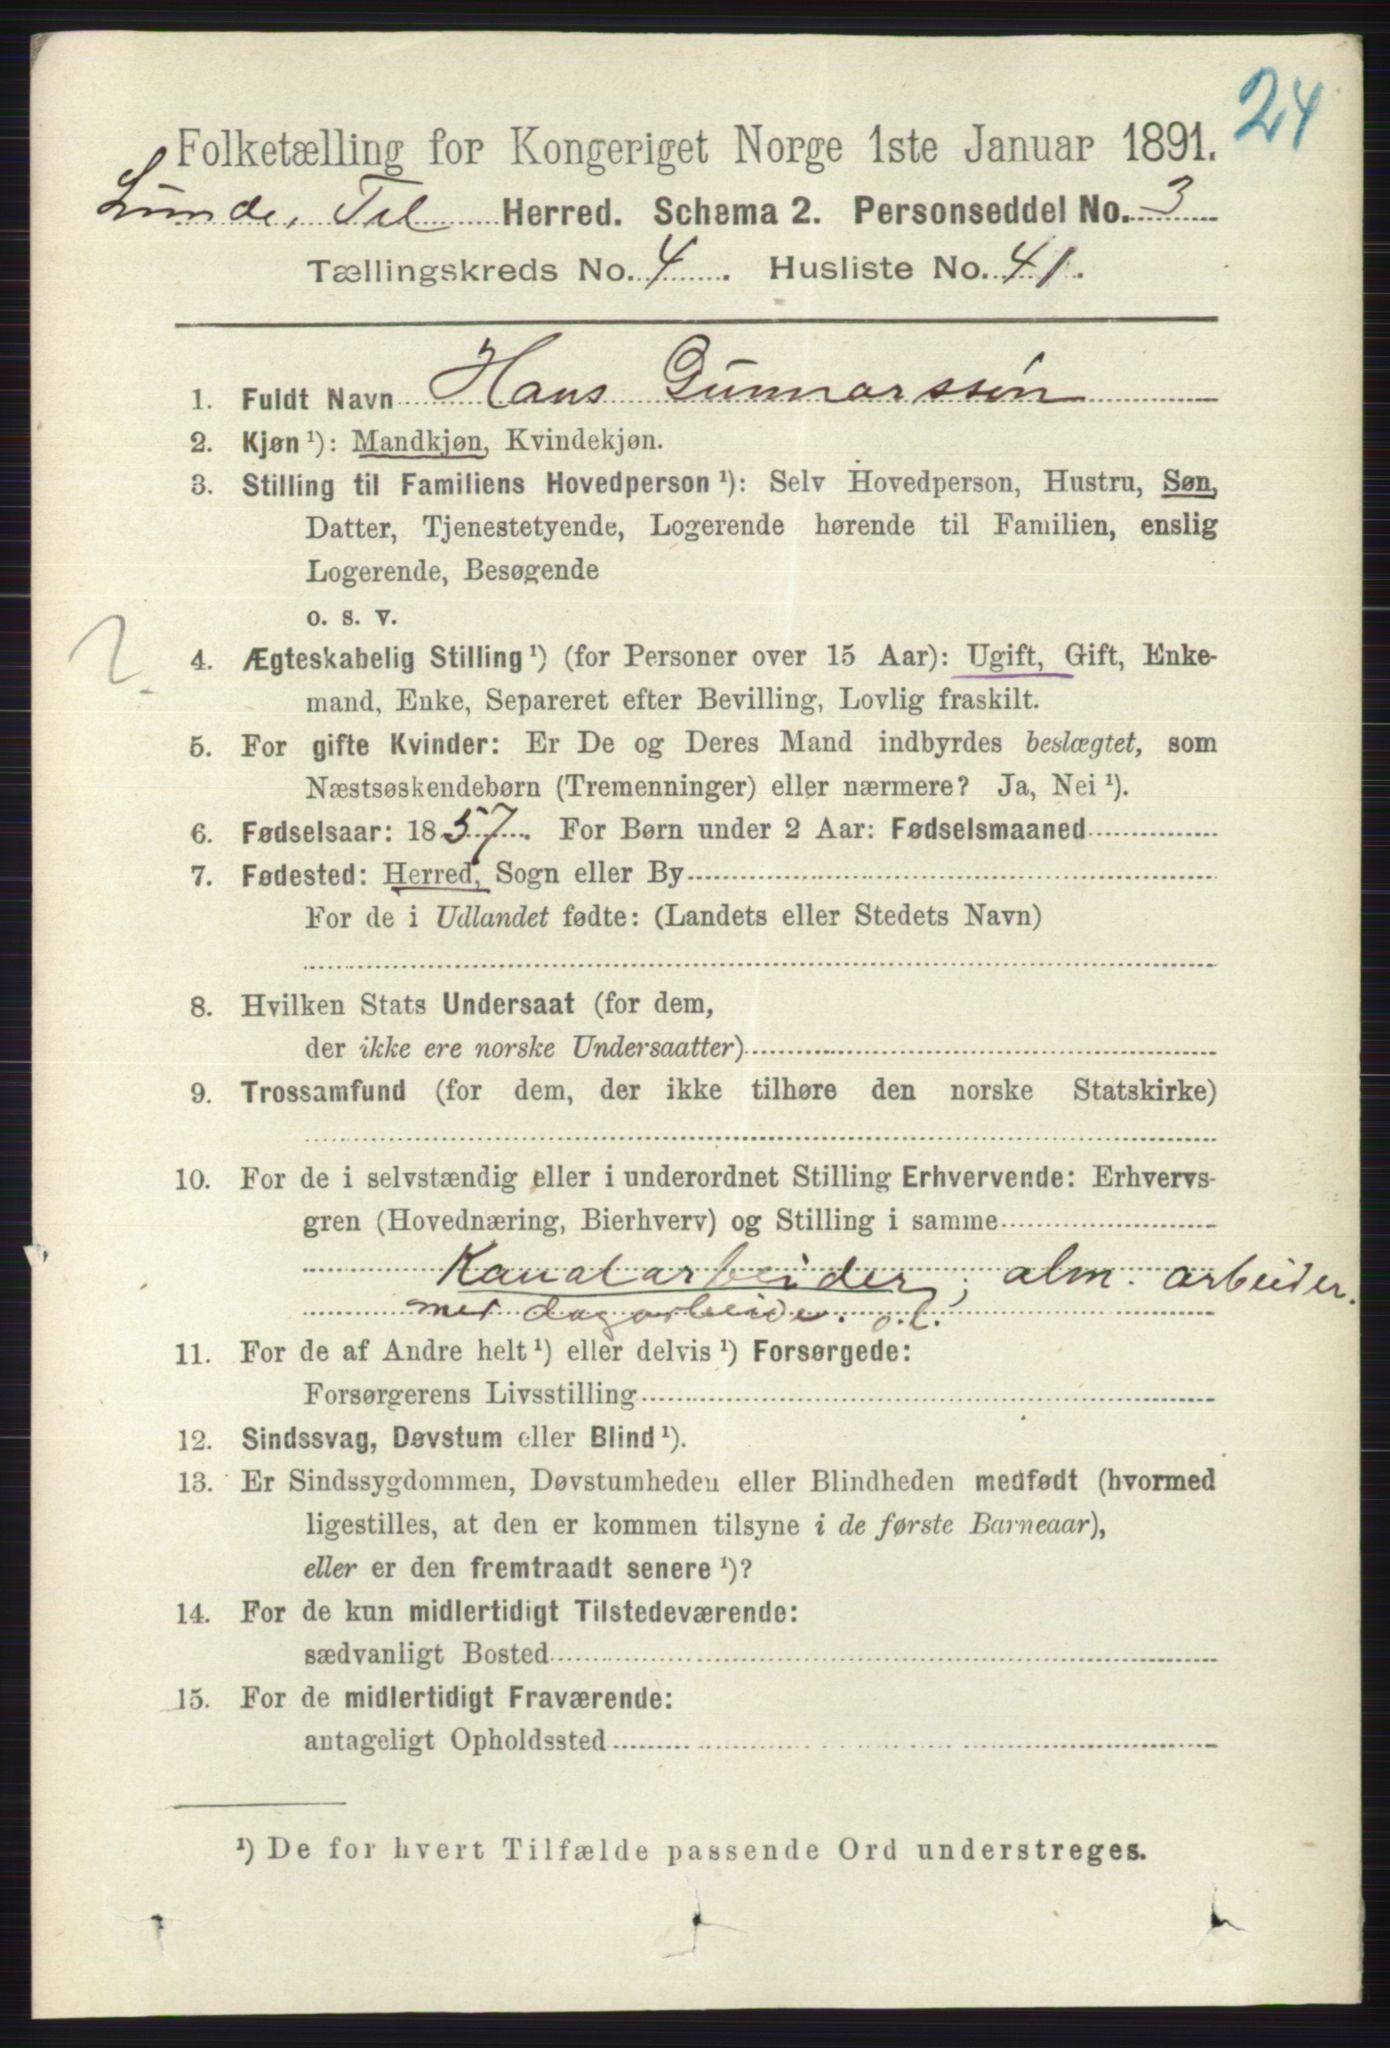 24
Folketælling for Kongeriget Norge 1ste Januar 1891.
Lunde, Tel Herred. Schema 2. Personseddel No. 3
Tællingskreds No. 4. Husliste No. 41.
1. Fuldt Navn Hans Gunnarssøn
2. Kjøn ¹): Mandkjøn, Kvindekjøn.
3. Stilling til Familiens Hovedperson ¹): Selv Hovedperson, Hustru, Søn,
Datter, Tjenestetyende, Logerende hørende til Familien, enslig
Logerende, Besøgende
o. s. v.
4. Ægteskabelig Stilling ¹) (for Personer over 15 Aar): Ugift, Gift, Enke-
mand, Enke, Separeret efter Bevilling, Lovlig fraskilt.
5. For gifte Kvinder: Er De og Deres Mand indbyrdes beslægtet, som
Næstsøskendebørn (Tremenninger) eller nærmere? Ja, Nei ¹).
6. Fødselsaar: 1857. For Børn under 2 Aar: Fødselsmaaned
7. Fødested: Herred, Sogn eller By
For de i Udlandet fødte: (Landets eller Stedets Navn)
8. Hvilken Stats Undersaat (for dem,
der ikke ere norske Undersaatter)
9. Trossamfund (for dem, der ikke tilhøre den norske Statskirke)
10. For de i selvstændig eller i underordnet Stilling Erhvervende: Erhvervs-
gren (Hovednæring, Bierhverv) og Stilling i samme
Kanalarbeider; alm. arbeider.
med dagarbeide. o.l.
11. For de af Andre helt ¹) eller delvis ¹) Forsørgede:
Forsørgerens Livsstilling
12. Sindssvag, Døvstum eller Blind ¹).
13. Er Sindssygdommen, Døvstumheden eller Blindheden medfødt (hvormed
ligestilles, at den er kommen tilsyne i de første Barneaar),
eller er den fremtraadt senere ¹)?
14. For de kun midlertidigt Tilstedeværende:
sædvanligt Bosted
15. For de midlertidigt Fraværende:
antageligt Opholdssted
¹) De for hvert Tilfælde passende Ord understreges.